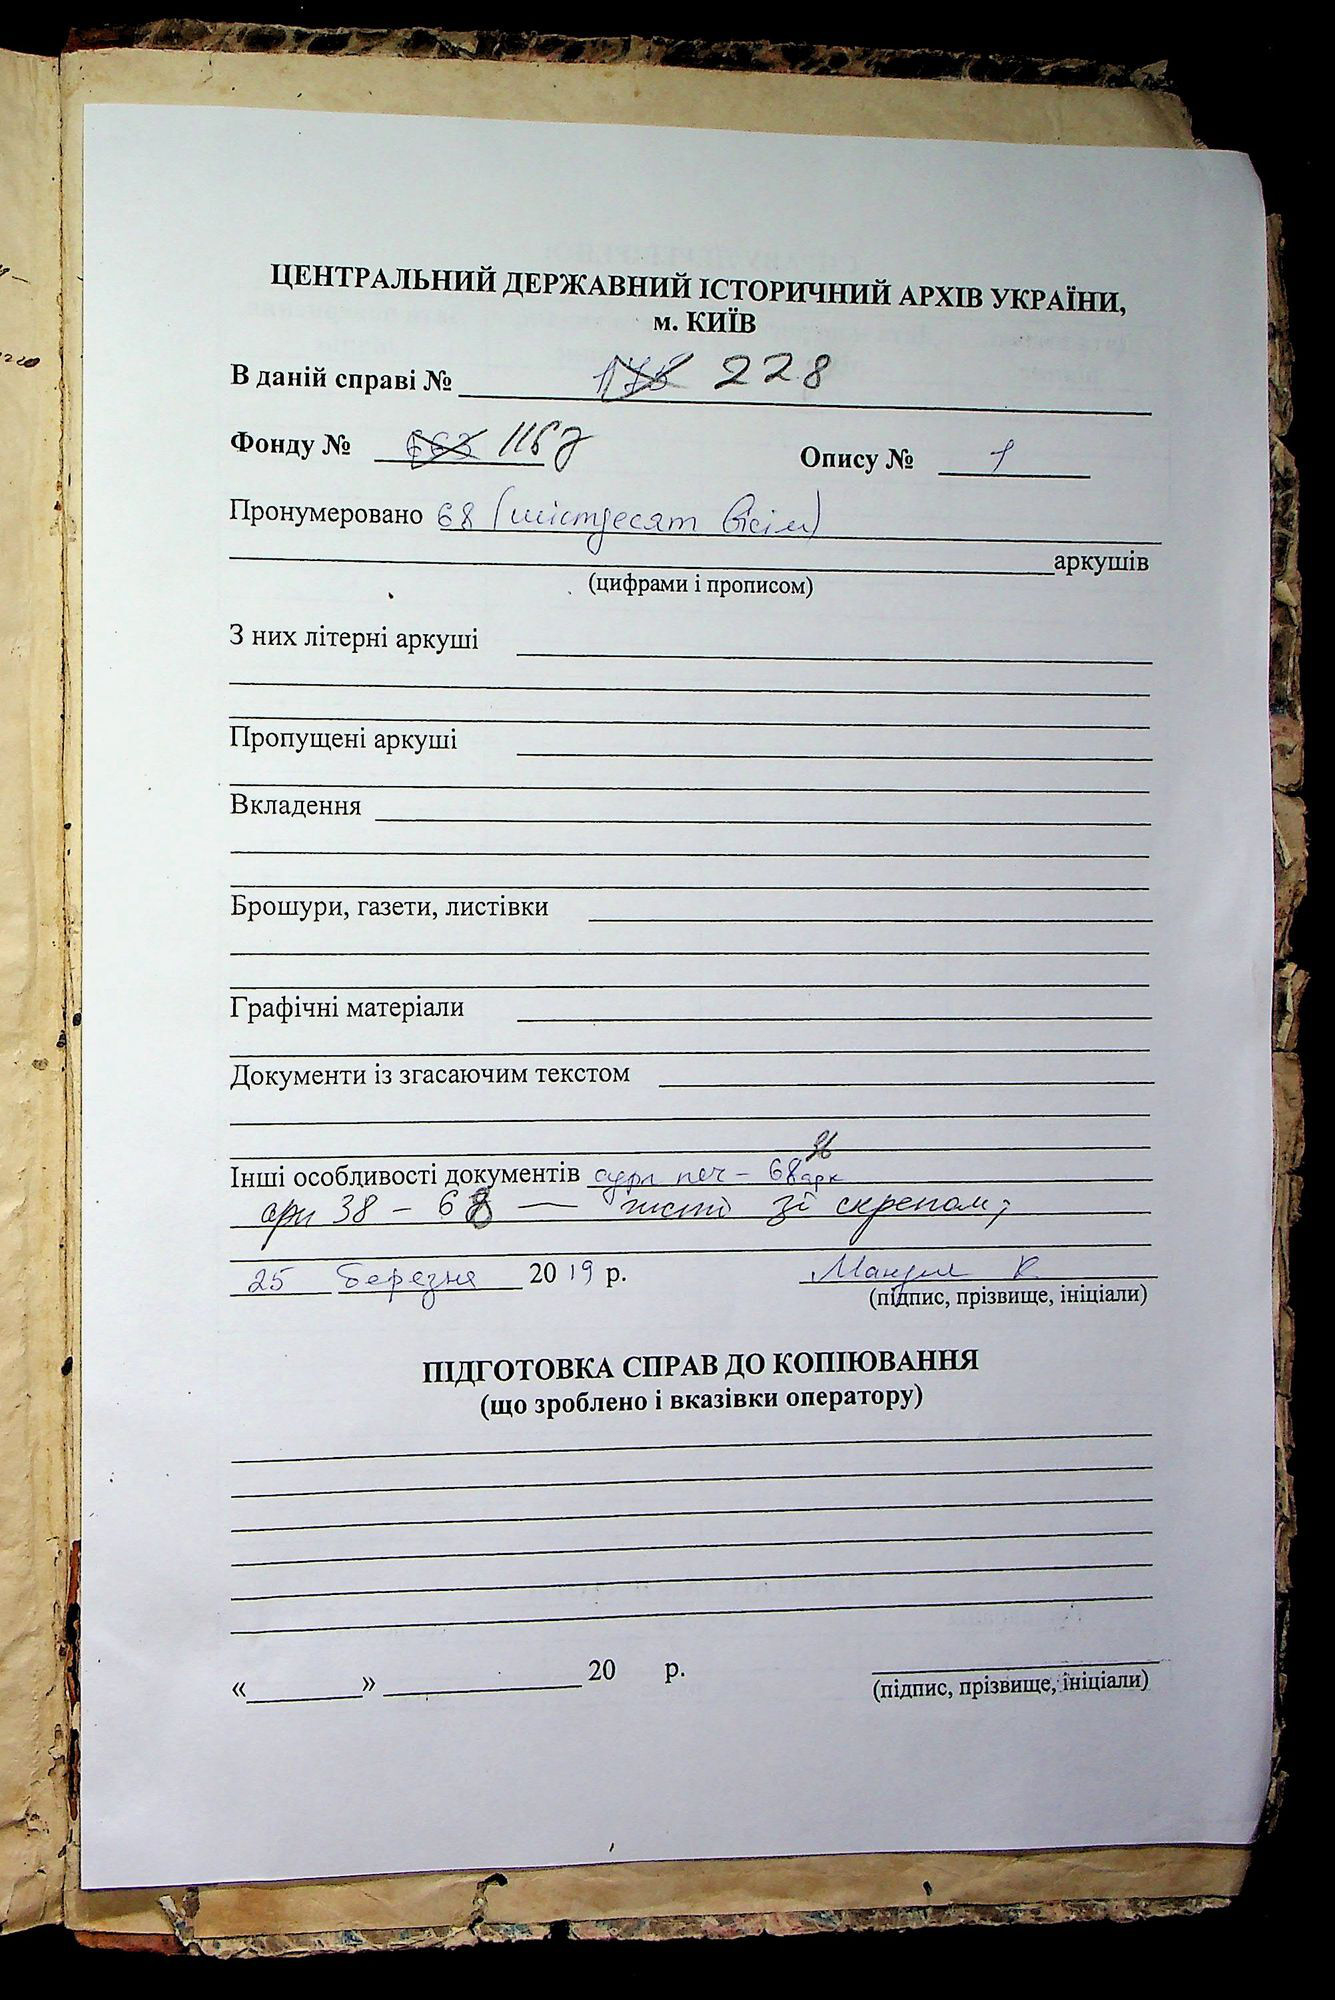 ЦЕНТРАЛЬНИЙ ДЕРЖАВНИЙ ІСТОРИЧНИЙ АРХІВ УКРАЇНИ,
м. КИЇВ
В даній справі № 228
Фонду № 1167 Опису № 1
Пронумеровано 68 (шістдесят вісім)
аркушів
(цифрами і прописом)
З них літерні аркуші
Пропущені аркуші
Вкладення
Брошури, газети, листівки
Графічні матеріали
Документи із згасаючим текстом
36
Інші особливості документів сург печ – 68 арк
арк 38 – 68 — листи зі скрепом;
25 березня 2019 р.
(підпис, прізвище, ініціали)
ПІДГОТОВКА СПРАВ ДО КОПІЮВАННЯ
(що зроблено і вказівки оператору)
« » 20 р.
(підпис, прізвище, ініціали)